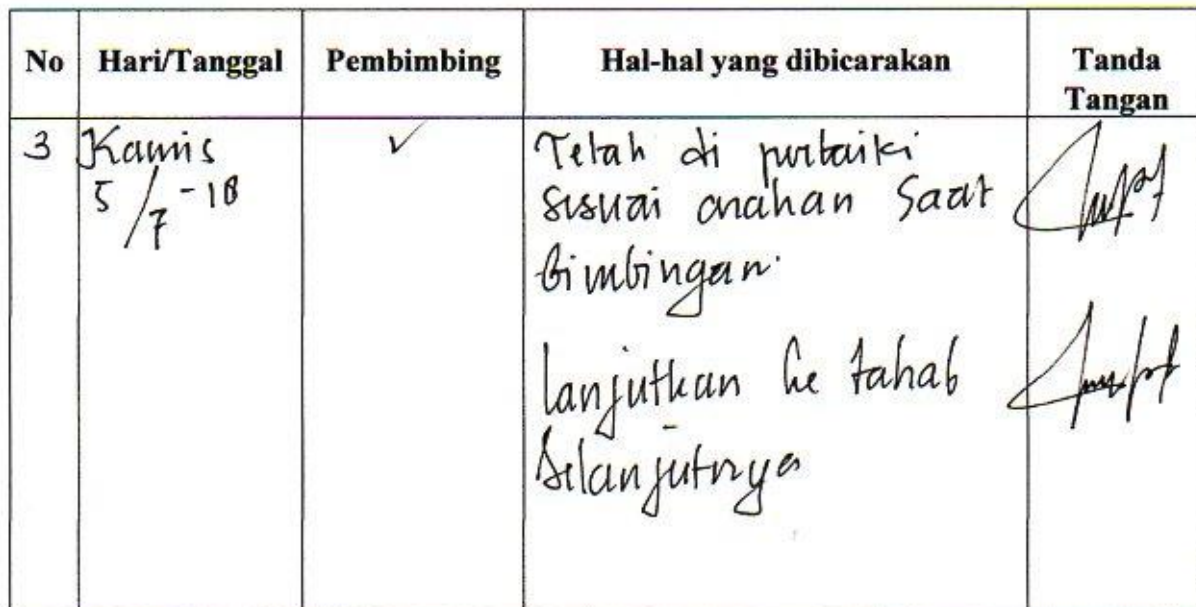 No Hari/Tanggal Pembimbing Hal-hal yang dibicarakan Tanda Tangan
3 Kamis ✓ Telah di perbaiki
5/7-18 sesuai arahan saat
bimbingan.
lanjutkan ke tahab
selanjutnya